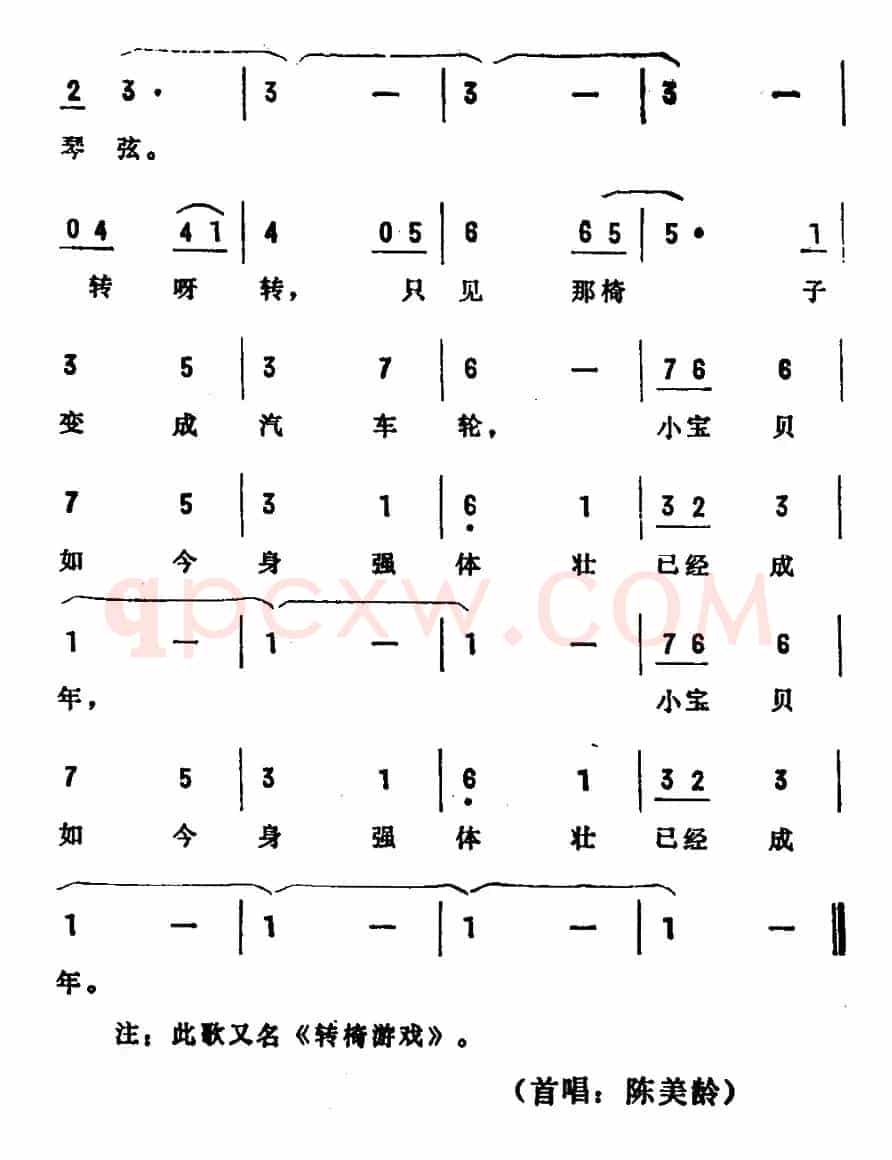 2 3 · | 3 — | 3 — | 3 — |
琴弦。
0 4 4 1 | 4 0 5 | 6 6 5 | 5 · 1 |
转呀转，只见那椅子
3 5 | 3 7 | 6 — | 7 6 6 |
变成汽车轮，小宝贝
7 5 | 3 1 | 6 1 | 3 2 3 |
如今身强体壮已经成
qpcxw.COM
1 — | 1 — | 1 — | 7 6 6 |
年，小宝贝
7 5 | 3 1 | 6 1 | 3 2 3 |
如今身强体壮已经成
1 — | 1 — | 1 — | 1 — ‖
年。
注：此歌又名《转椅游戏》。
（首唱：陈美龄）